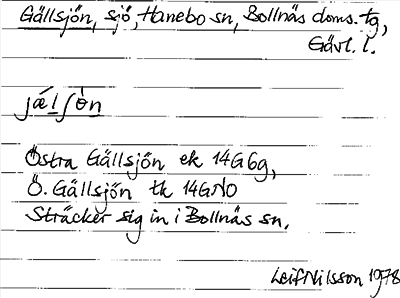 Gällsjön, sjö, Hanebo sn, Bollnäs doms. tg,
Gävl. l.
jǽlʃὸn
Östra Gällsjön ek 14G6g,
Ö. Gällsjön tk 14GNO
Sträcker sig in i Bollnäs sn.
Leif Nilsson 1978